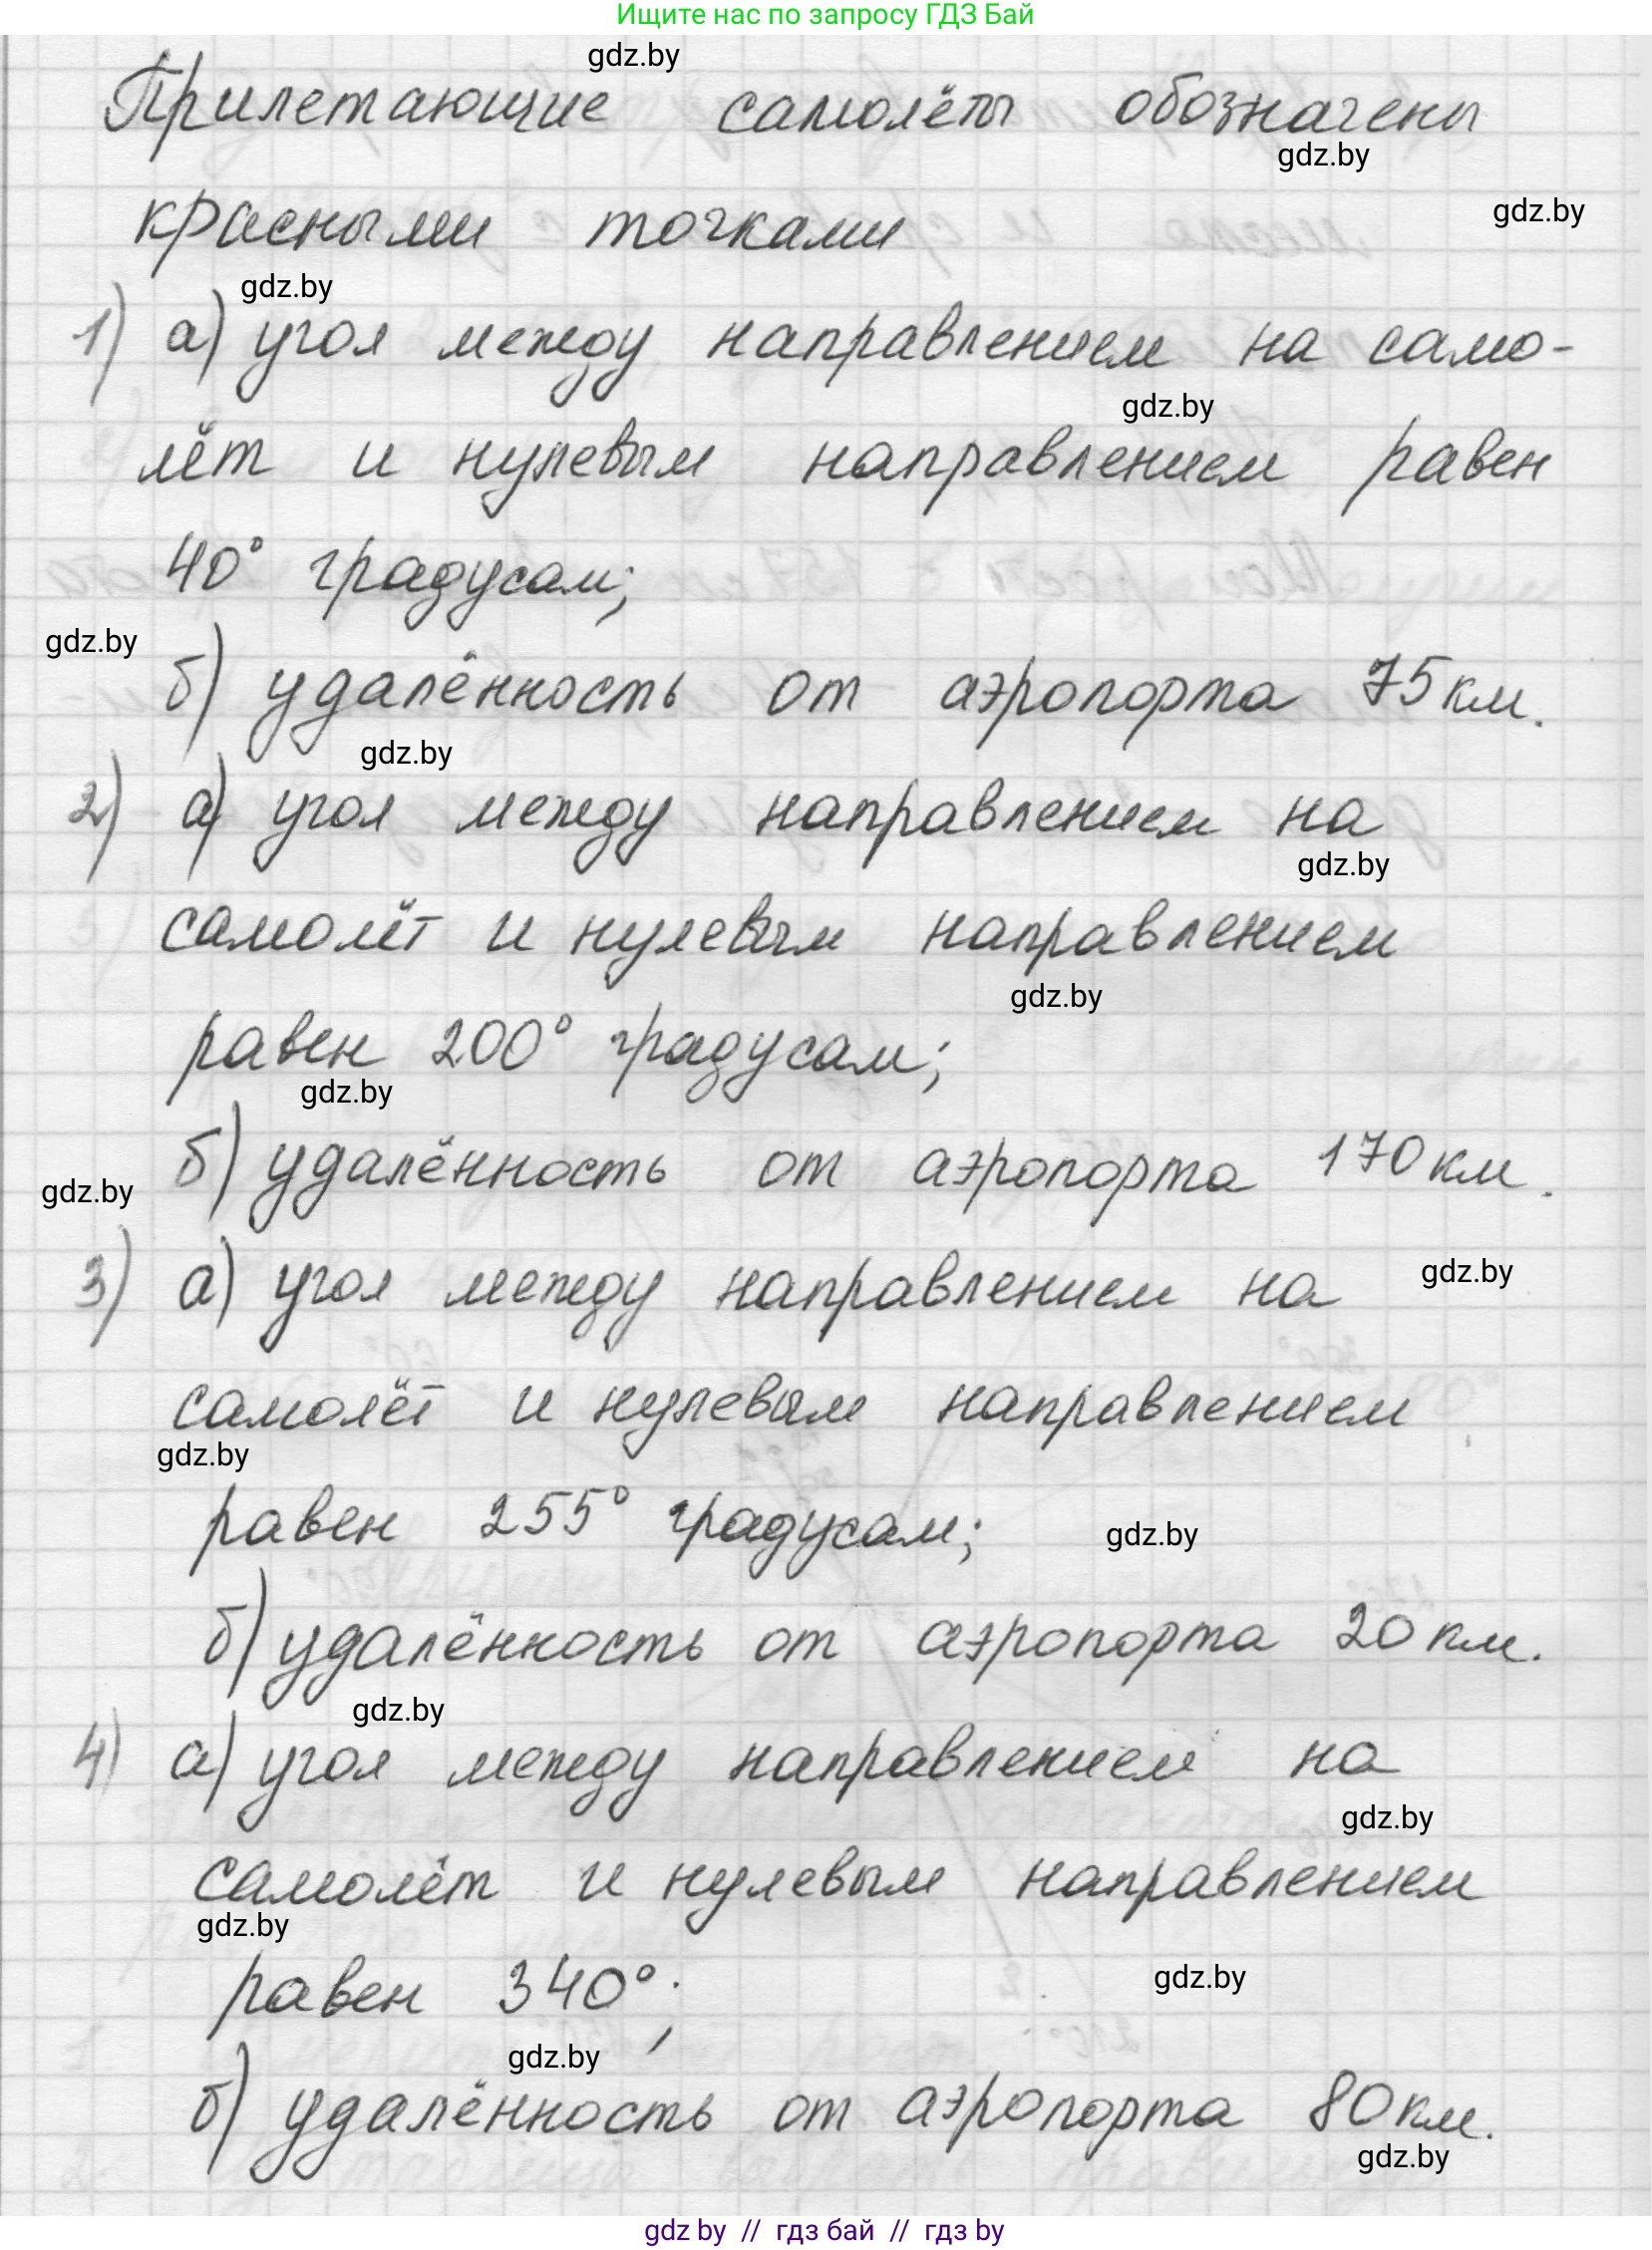 Ищите нас по запросу ГДЗ Бай
gdz.by
Прилетающие самолёты обозначены
gdz.by
gdz.by
красными точками
gdz.by
1) а) угол между направлением на само-
gdz.by
лёт и нулевым направлением равен
40° градусам;
gdz.by
б) удалённость от аэропорта 75км.
gdz.by
2) а) угол между направлением на
gdz.by
самолёт и нулевым направлением
gdz.by
равен 200° градусам;
gdz.by
б) удалённость от аэропорта 170км.
gdz.by
3) а) угол между направлением на
gdz.by
самолёт и нулевым направлением
gdz.by
равен 255° градусам;
gdz.by
б) удалённость от аэропорта 20км.
gdz.by
4) а) угол между направлением на
gdz.by
самолёт и нулевым направлением
gdz.by
равен 340°;
gdz.by
gdz.by
б) удалённость от аэропорта 80км.
gdz.by
gdz by // гдз бай // гдз by